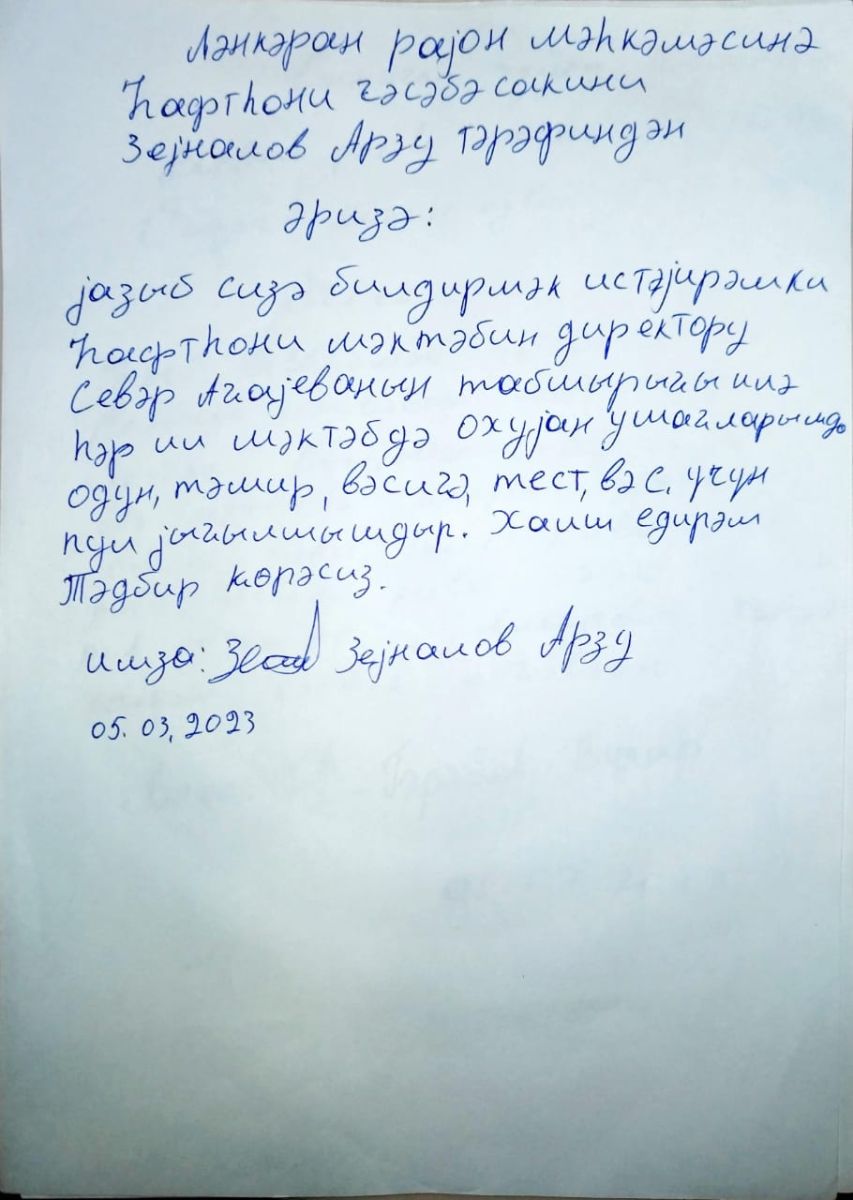 Ләнкәран рајон мәһкәмәсинә
Һафтһони гәсәбә сакини
Зејналов Арзу тәрәфиндән
әризә:
јазыб сизә билдирмәк истәјирәмки
Һафтһони мәктәбин директору
Севәр Ағајеванын табшырығы илә
һәр ил мәктәбдә охујан ушагларымдә
одун, тәмир, вәсигә, тест, вәс. учун
пул јығылмышдыр. Хаиш едирәм
Тәдбир көрәсиз.
имза: Зејналов Арзу
05.03,2023